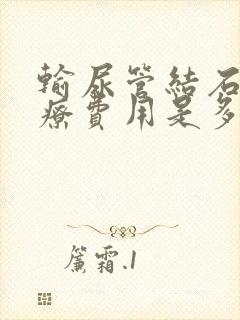 輸尿管結石
療費用是多
簾霜.1